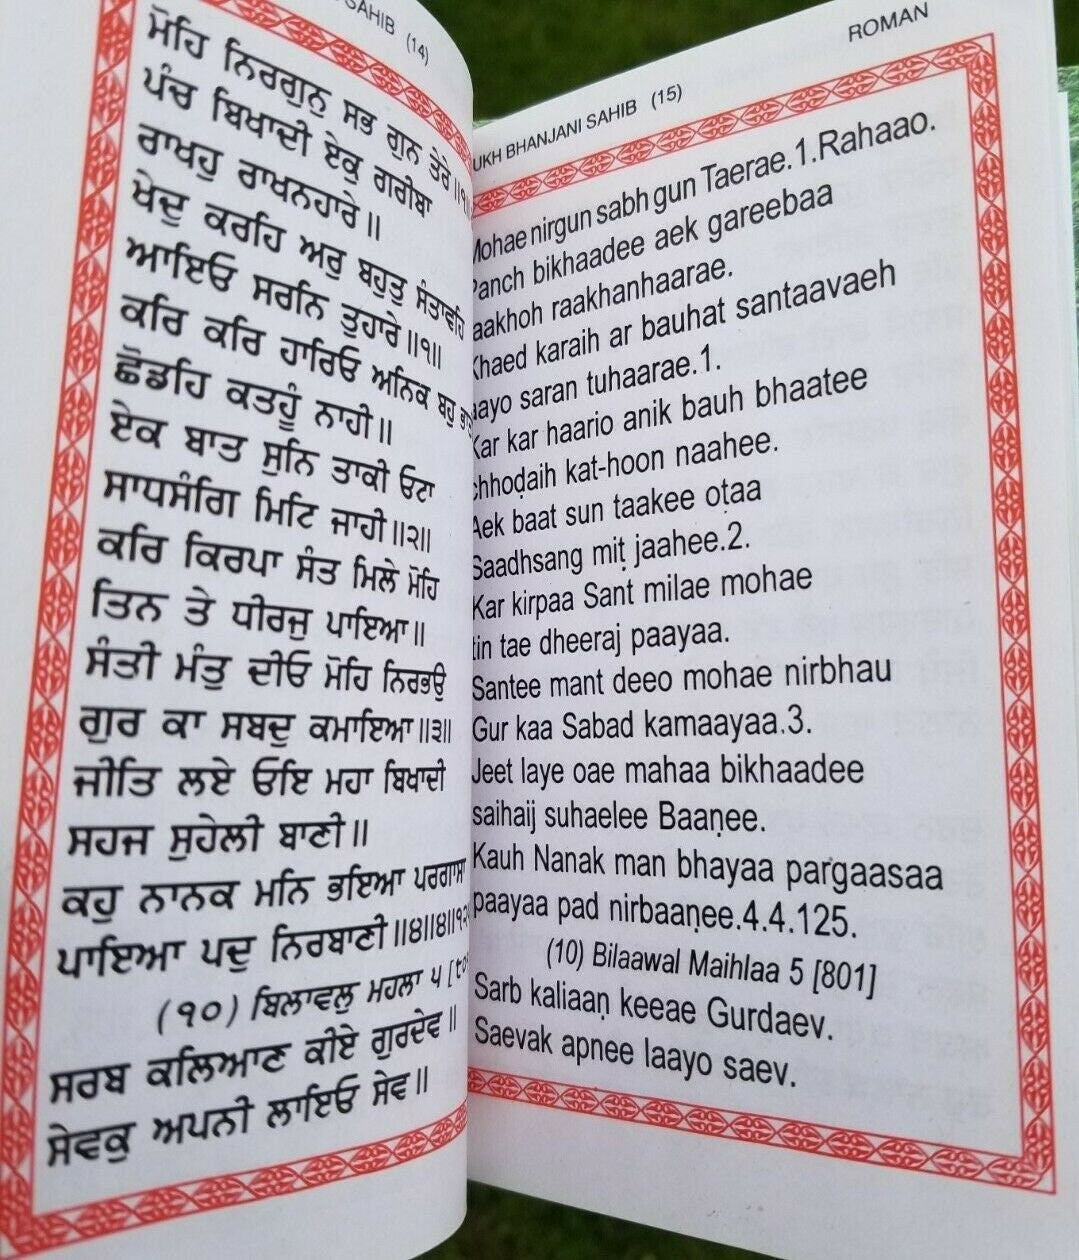 SAHIB (14)
ਮੋਹਿ ਨਿਰਗੁਨੁ ਸਭ ਗੁਨ ਤੇਰੇ॥੧॥
ਪੰਚ ਬਿਖਾਦੀ ਏਕੁ ਗਰੀਬਾ
ਰਾਖਹੁ ਰਾਖਨਹਾਰੇ॥
ਖੇਦੁ ਕਰਹਿ ਅਰੁ ਬਹੁਤੁ ਸੰਤਾਵਹਿ
ਆਇਓ ਸਰਨਿ ਤੁਹਾਰੇ॥੧॥
ਕਰਿ ਕਰਿ ਹਾਰਿਓ ਅਨਿਕ ਬਹੁ
ਛੋਡਹਿ ਕਤਹੂੰ ਨਾਹੀ॥
ਏਕ ਬਾਤ ਸੁਨਿ ਤਾਕੀ ਓਟਾ
ਸਾਧਸੰਗਿ ਮਿਟਿ ਜਾਹੀ॥੨॥
ਕਰਿ ਕਿਰਪਾ ਸੰਤ ਮਿਲੇ ਮੋਹਿ
ਤਿਨ ਤੇ ਧੀਰਜੁ ਪਾਇਆ॥
ਸੰਤੀ ਮੰਤੁ ਦੀਓ ਮੋਹਿ ਨਿਰਭਉ
ਗੁਰ ਕਾ ਸਬਦੁ ਕਮਾਇਆ॥੩॥
ਜੀਤਿ ਲਏ ਓਇ ਮਹਾ ਬਿਖਾਦੀ
ਸਹਜ ਸੁਹੇਲੀ ਬਾਣੀ॥
ਕਹੁ ਨਾਨਕ ਮਨਿ ਭਇਆ ਪਰਗਾਸਾ
ਪਾਇਆ ਪਦੁ ਨਿਰਬਾਣੀ॥੪॥੪॥੧੨
(੧੦) ਬਿਲਾਵਲੁ ਮਹਲਾ ੫
ਸਰਬ ਕਲਿਆਣ ਕੀਏ ਗੁਰਦੇਵ॥
ਸੇਵਕੁ ਅਪਨੀ ਲਾਇਓ ਸੇਵ॥
UKH BHANJANI SAHIB (15) ROMAN
Mohae nirgun sabh gun Taerae.1.Rahaao.
Panch bikhaadee aek gareebaa
aakhoh raakhanhaarae.
Khaed karaih ar bauhat santaavaeh
aayo saran tuhaarae.1.
Kar kar haario anik bauh bhaatee
chhoḍaih kat-hoon naahee.
Aek baat sun taakee oṭaa
Saadhsang miṭ jaahee.2.
Kar kirpaa Sant milae mohae
tin tae dheeraj paayaa.
Santee mant deeo mohae nirbhau
Gur kaa Sabad kamaayaa.3.
Jeet laye oae mahaa bikhaadee
saihaij suhaelee Baaṇee.
Kauh Nanak man bhayaa pargaasaa
paayaa pad nirbaaṇee.4.4.125.
(10) Bilaawal Maihlaa 5 [801]
Sarb kaliaaṇ keeae Gurdaev.
Saevak apnee laayo saev.